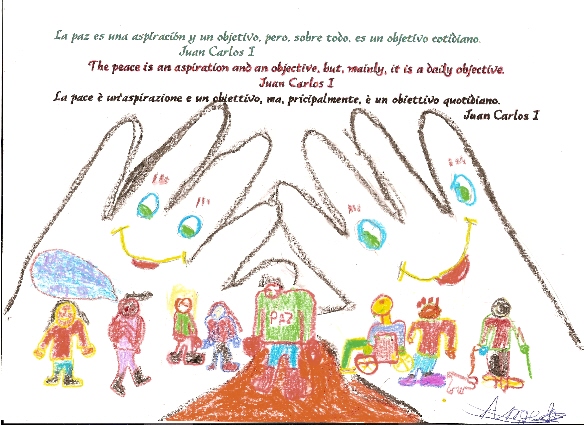 La paz es una aspiración y un objetivo, pero, sobre todo, es un objetivo cotidiano.
Juan Carlos I
The peace is an aspiration and an objective, but, mainly, it is a daily objective.
Juan Carlos I
La pace è un'aspirazione e un obiettivo, ma, pricipalmente, è un obiettivo quotidiano.
Juan Carlos I
PAZ